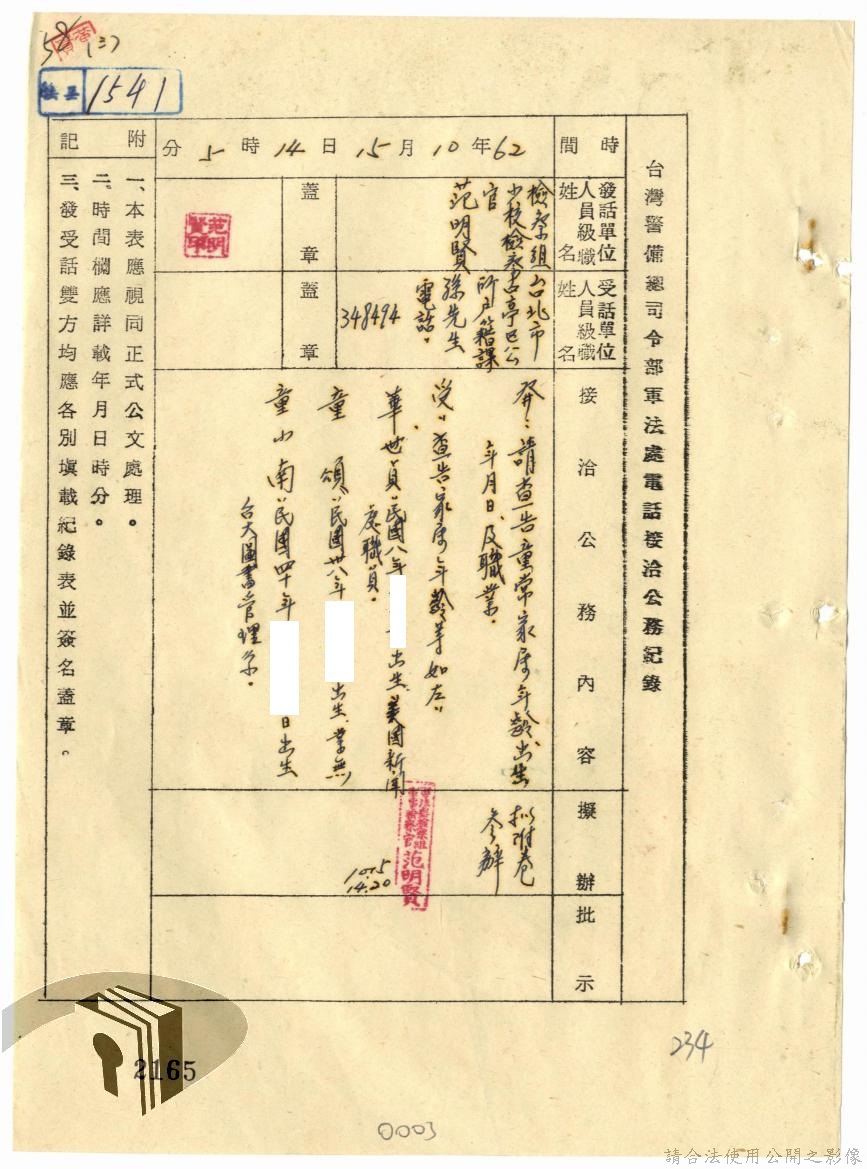 58 (三)
1541
台灣警備總司令部軍法處電話接洽公務紀錄
時間
62年10月15日14時5分
發話單位人員級職姓名
檢察組
少校檢察官
范明賢
蓋章
范明賢印
受話單位人員級職姓名
台北市古亭區公所戶籍課
孫先生
電話。
348494
蓋章
接洽公務內容
發:請查告童常家屬年齡、出生
年月日、及職業。
受:查告家屬年齡等如左:
華世貞 民國八年 出生、美國新聞處職員。
童頌 民國卅八年 出生、業無
童小南 民國四十年 日出生
台大圖書管理系。
擬辦
擬附卷
參辦
范明賢
10.15
14.20
批示
附記
一、本表應視同正式公文處理。
二、時間欄應詳載年月日時分。
三、發受話雙方均應各別填載紀錄表並簽名蓋章。
2165
234
0003
請合法使用公開之影像